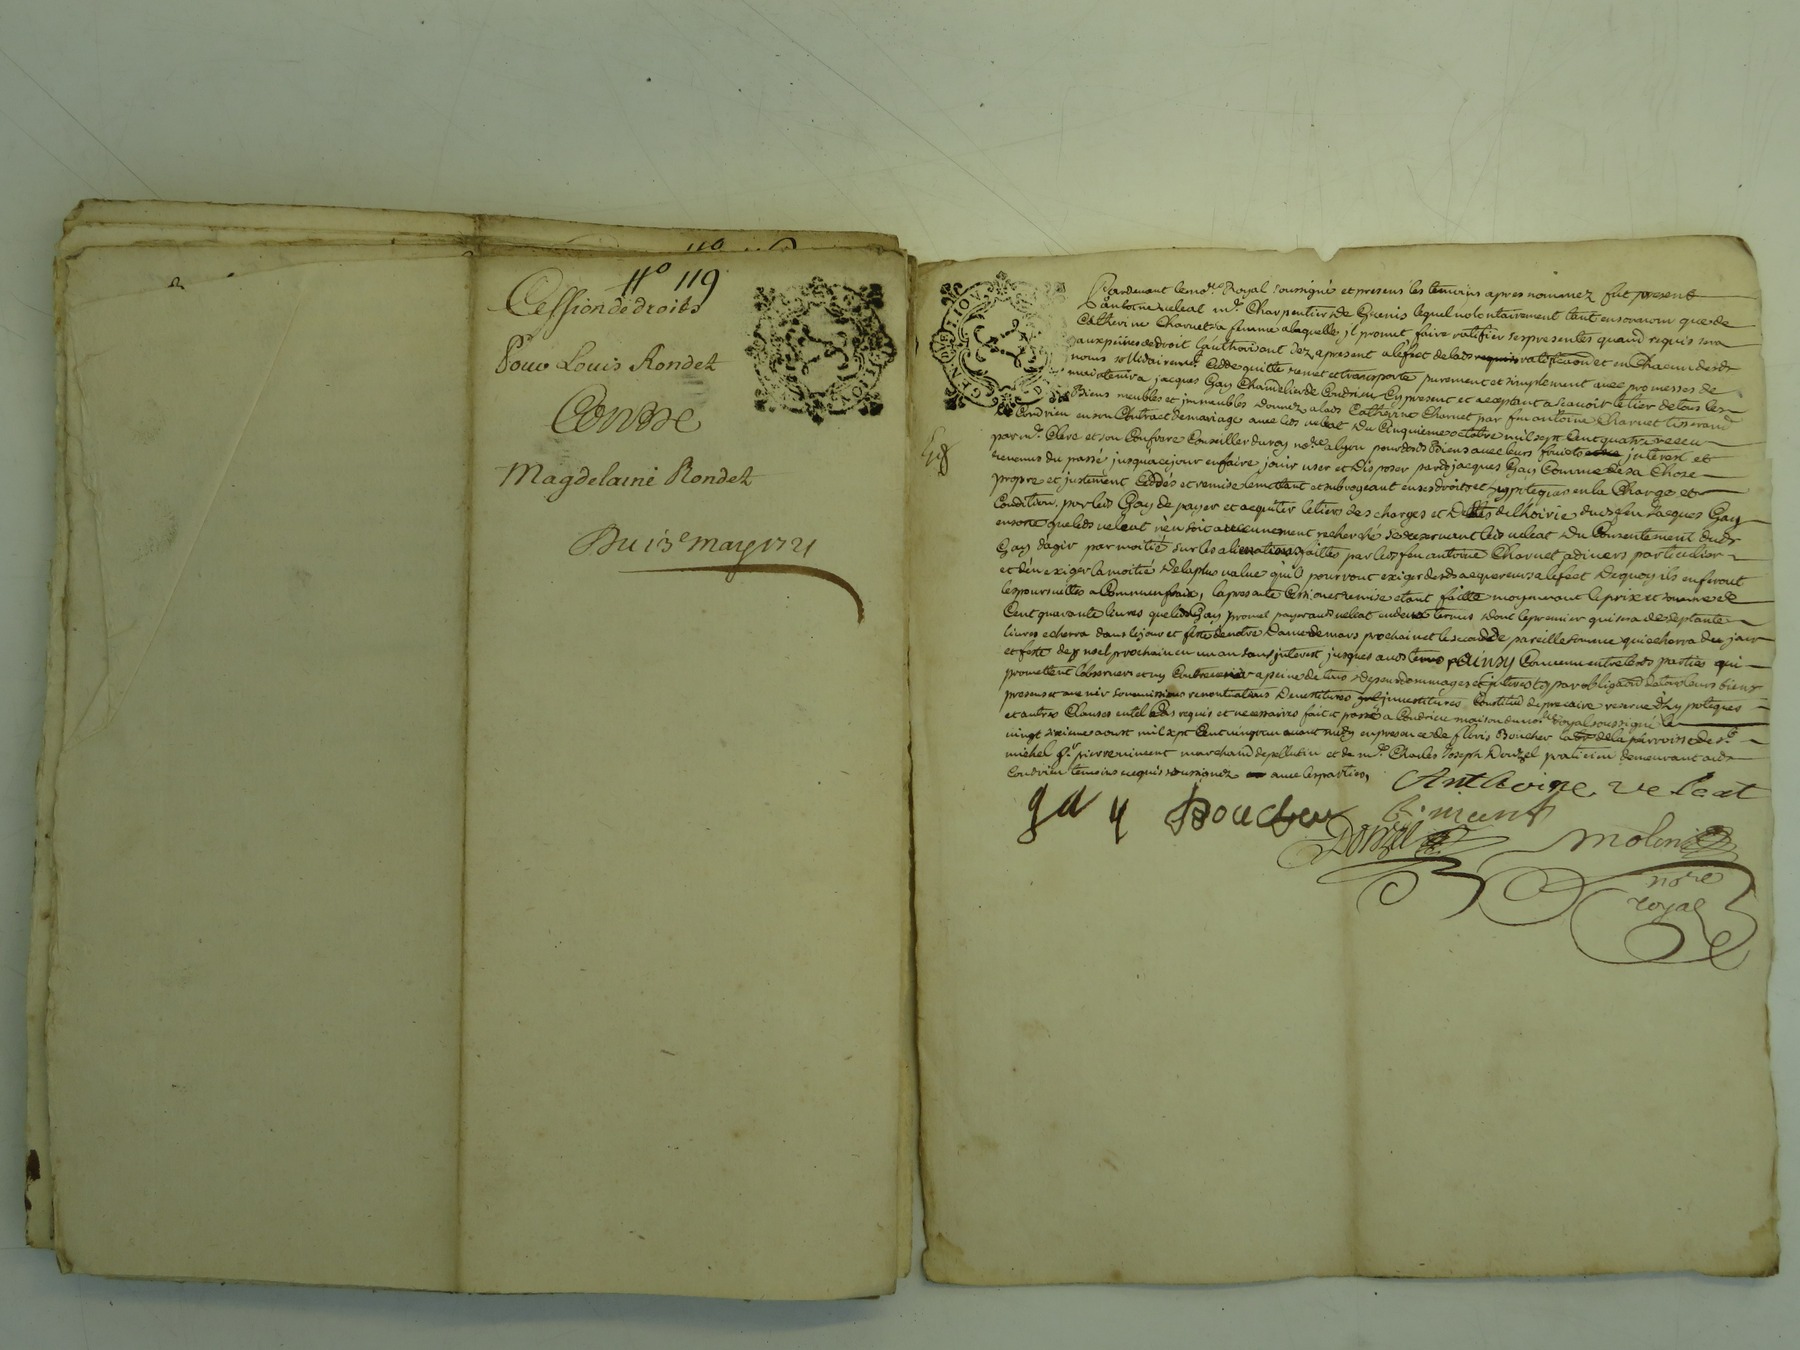 n° 119
Cession de droits
Pour Louis Rondet
Contre
Magdelaine Rondet
Du 13e may 1721
GENERALITE DE LION
Pardevant le nore. Royal soussigné et presens les temoins apres nommez fut present
antoine veleat mr. Charpentier de lequel volontairement tant en son nom que de
Catherine Charvet sa femme a laquelle il promet faire ratiffier ses presentes quand requis sera
aux peines de droit Lauthorisant dez apresent a leffet de lad ratification et en Chacun desds
noms sollidairemt. Cedde quitte remet et transporte purement et simplement avec promesses de
maintenir a jacques Gay de Condrieu Cy present et acceptant a scavoir le tier de tous les
Biens meubles et immeubles donnez a lade Catherine Charvet par feu antoine Charvet tisserand
de Condrieu en son Contract de mariage avec leds veleat du Cinquieme octobre mil sept Cent quatre receu
par mr. Clere et son Confrere Conseiller du roy nore a lyon pour desds Biens avec leurs fruits interest et
revenus du passé jusqu'a ce jour en faire jouir user et disposer par ds jacques Gay Comme de sa Chose
propre et justement Ceddés et remise le mettant et subrogeant en ses droits et en la Charge et
Condition par leds Gay de payer et acquiter le tiers des charges et dettes de lhoirie
en sorte que leds veleat n'en soit aucunement recherché se reservant leds veleat du Consentement duds
Gay d'agir par moitié sur les alienations faittes par leds feu antoine Charvet a divers particulier
et d'en exiger la moitié de la plus value qu'il pourront exiger desds acquereurs a leffect dequoy ils en feront
les poursuittes a Commun fraix, la presente Cession et remise etant faitte moyennant le prix et somme de
Cent quarante livres que leds Gay promet payer auds veleat en deux termes dont le premier qui sera de septante
livres echerra dans le jour et feste de notre Dame de mars prochain et le second de pareille somme qui echerra du jour
et feste de noel prochain en un an sans interest jusques auds terme ainsy Convenu entre lesds parties qui
promettent l'observer et ny Contrevenir a peine de tous depens dommages et interests par obligation de tous leurs biens
presens et avenir soumissions renontiations devestitures investitures Constitud de precaire reserve d'hypoteques
et autres Clauses en tel Cas requis et necessaires fait et passé a Condrieu maison du nore Royal soussigné le
vingt sixieme aoust mil sept Cent vingt un avant midy en presence de floris Boucher de la parroisse de st.
michel sr. pierre miment marchand de pellutin et de mr. Charles Joseph Donzel praticien demeurant auds
Condrieu temoins requis soussignez avec les parties,
Anthoine veleat
gay Boucher miment
Donzel molin
nore
royal